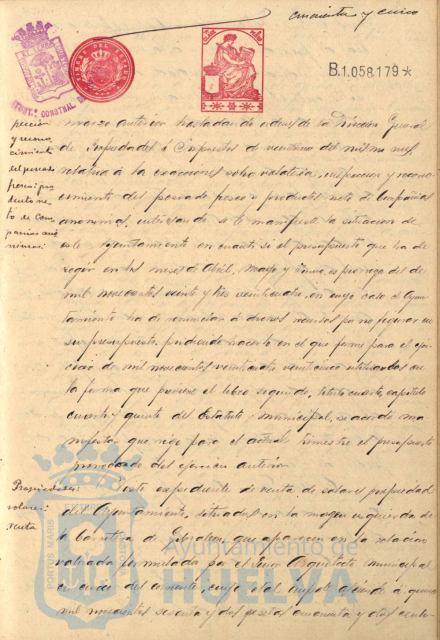 cincuenta y cinco
B.1.058.179*
TIMBRE DEL ESTADO
marzo anterior trasladando orden de la Dirección General
de Propiedades é Impuestos de veintiuno del mismo mes,
relativa á las exacciones sobre
cimiento del pescado fresco y producto neto de Compañías
anónimas, interesando se le manifieste la situación de
este Ayuntamiento en cuanto si el presupuesto que ha de
regir en los meses de Abril, Mayo y Junio es prórroga del de
mil novecientos veinte y tres veinticuatro, en cuyo caso el Ayun-
tamiento ha de renunciar á dichos recursos por no figurar en
su presupuesto, pudiendo hacerlo en el que forme para el ejer-
cicio de mil novecientos veinticuatro veinticinco utilizados en
la forma que previene el libro segundo, título cuarto, capítulo
cuarto y quinto del Estatuto municipal, se acordó ma-
nifestar que rige para el actual trimestre el presupuesto
prorrogado del ejercicio anterior.
Propiedades:
solares:
venta
Visto expediente de venta de solares propiedad
del Ayuntamiento, situados en la margen izquierda de
la Carretera de Gibraleón, que aparecen en la relación
valorada formulada por el Señor Arquitecto municipal
en cinco del corriente, cuyo total importe asciende á
mil novecientos sesenta y dos pesetas cincuenta y dos cénti-
PORTUS MARIS
Ayuntamiento de
HUELVA